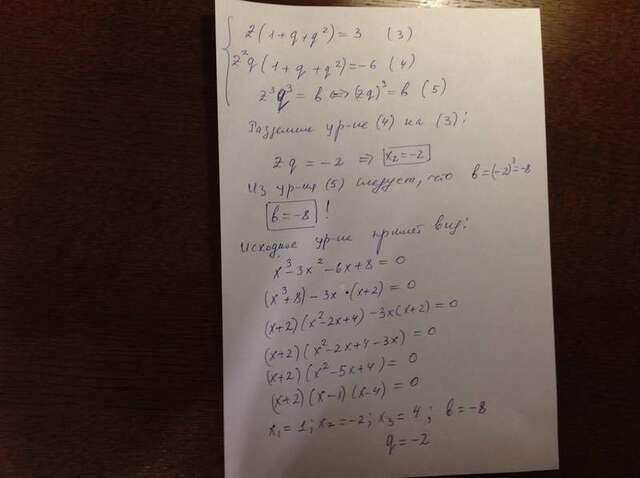 z(1+q+q²)=3 (3)
z²q(1+q+q²)=-6 (4)
z³q³=в ⟺ (zq)³=в (5)
Разделим ур-ие (4) на (3):
zq = -2 ⇒ x₂=-2
Из ур-ия (5) следует, что в=(-2)³=-8
в=-8 !
Исходное ур-ие примет вид:
x³-3x²-6x+8=0
(x³+8)-3x·(x+2)=0
(x+2)(x²-2x+4)-3x(x+2)=0
(x+2)(x²-2x+4-3x)=0
(x+2)(x²-5x+4)=0
(x+2)(x-1)(x-4)=0
x₁=1; x₂=-2; x₃=4; в=-8
q=-2